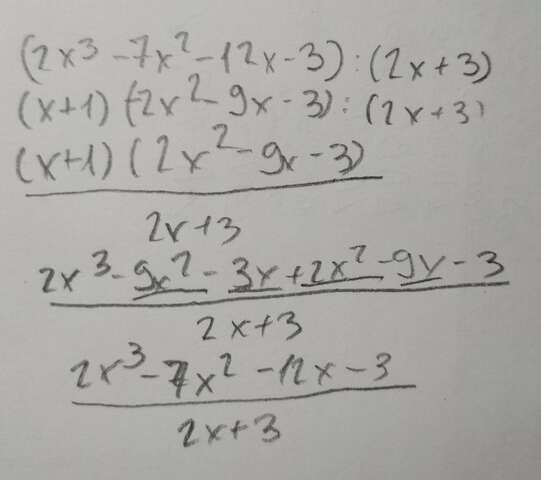 (2x³ - 7x² - 12x - 3) : (2x + 3)
(x+1) (2x² - 9x - 3) : (2x + 3)
(x+1) (2x² - 9x - 3)
2x+3
2x³ - 9x² - 3x + 2x² - 9x - 3
2x+3
2x³ - 7x² - 12x - 3
2x+3